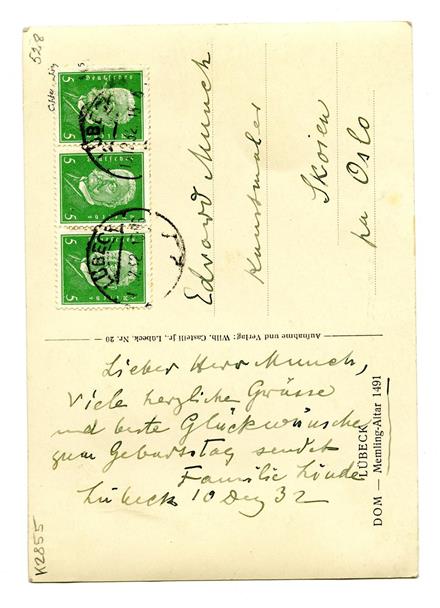 528
Deutsches
5 5
Deutsches
5 5
Deutsches
5 5
LÜBECK
LÜBECK
Edvard Munch
Kunstmaler
Skoien
pr Oslo
Aufnahme und Verlag: Wilh. Castelli jr., Lübeck, Nr. 20
Lieber Herr Munch,
Viele herzliche Grüsse
und beste Glückwünsche
zum Geburtstag sendet
Familie Linde
Lübeck 10 Dez 32
LÜBECK
DOM — Memling-Altar 1491
K2855